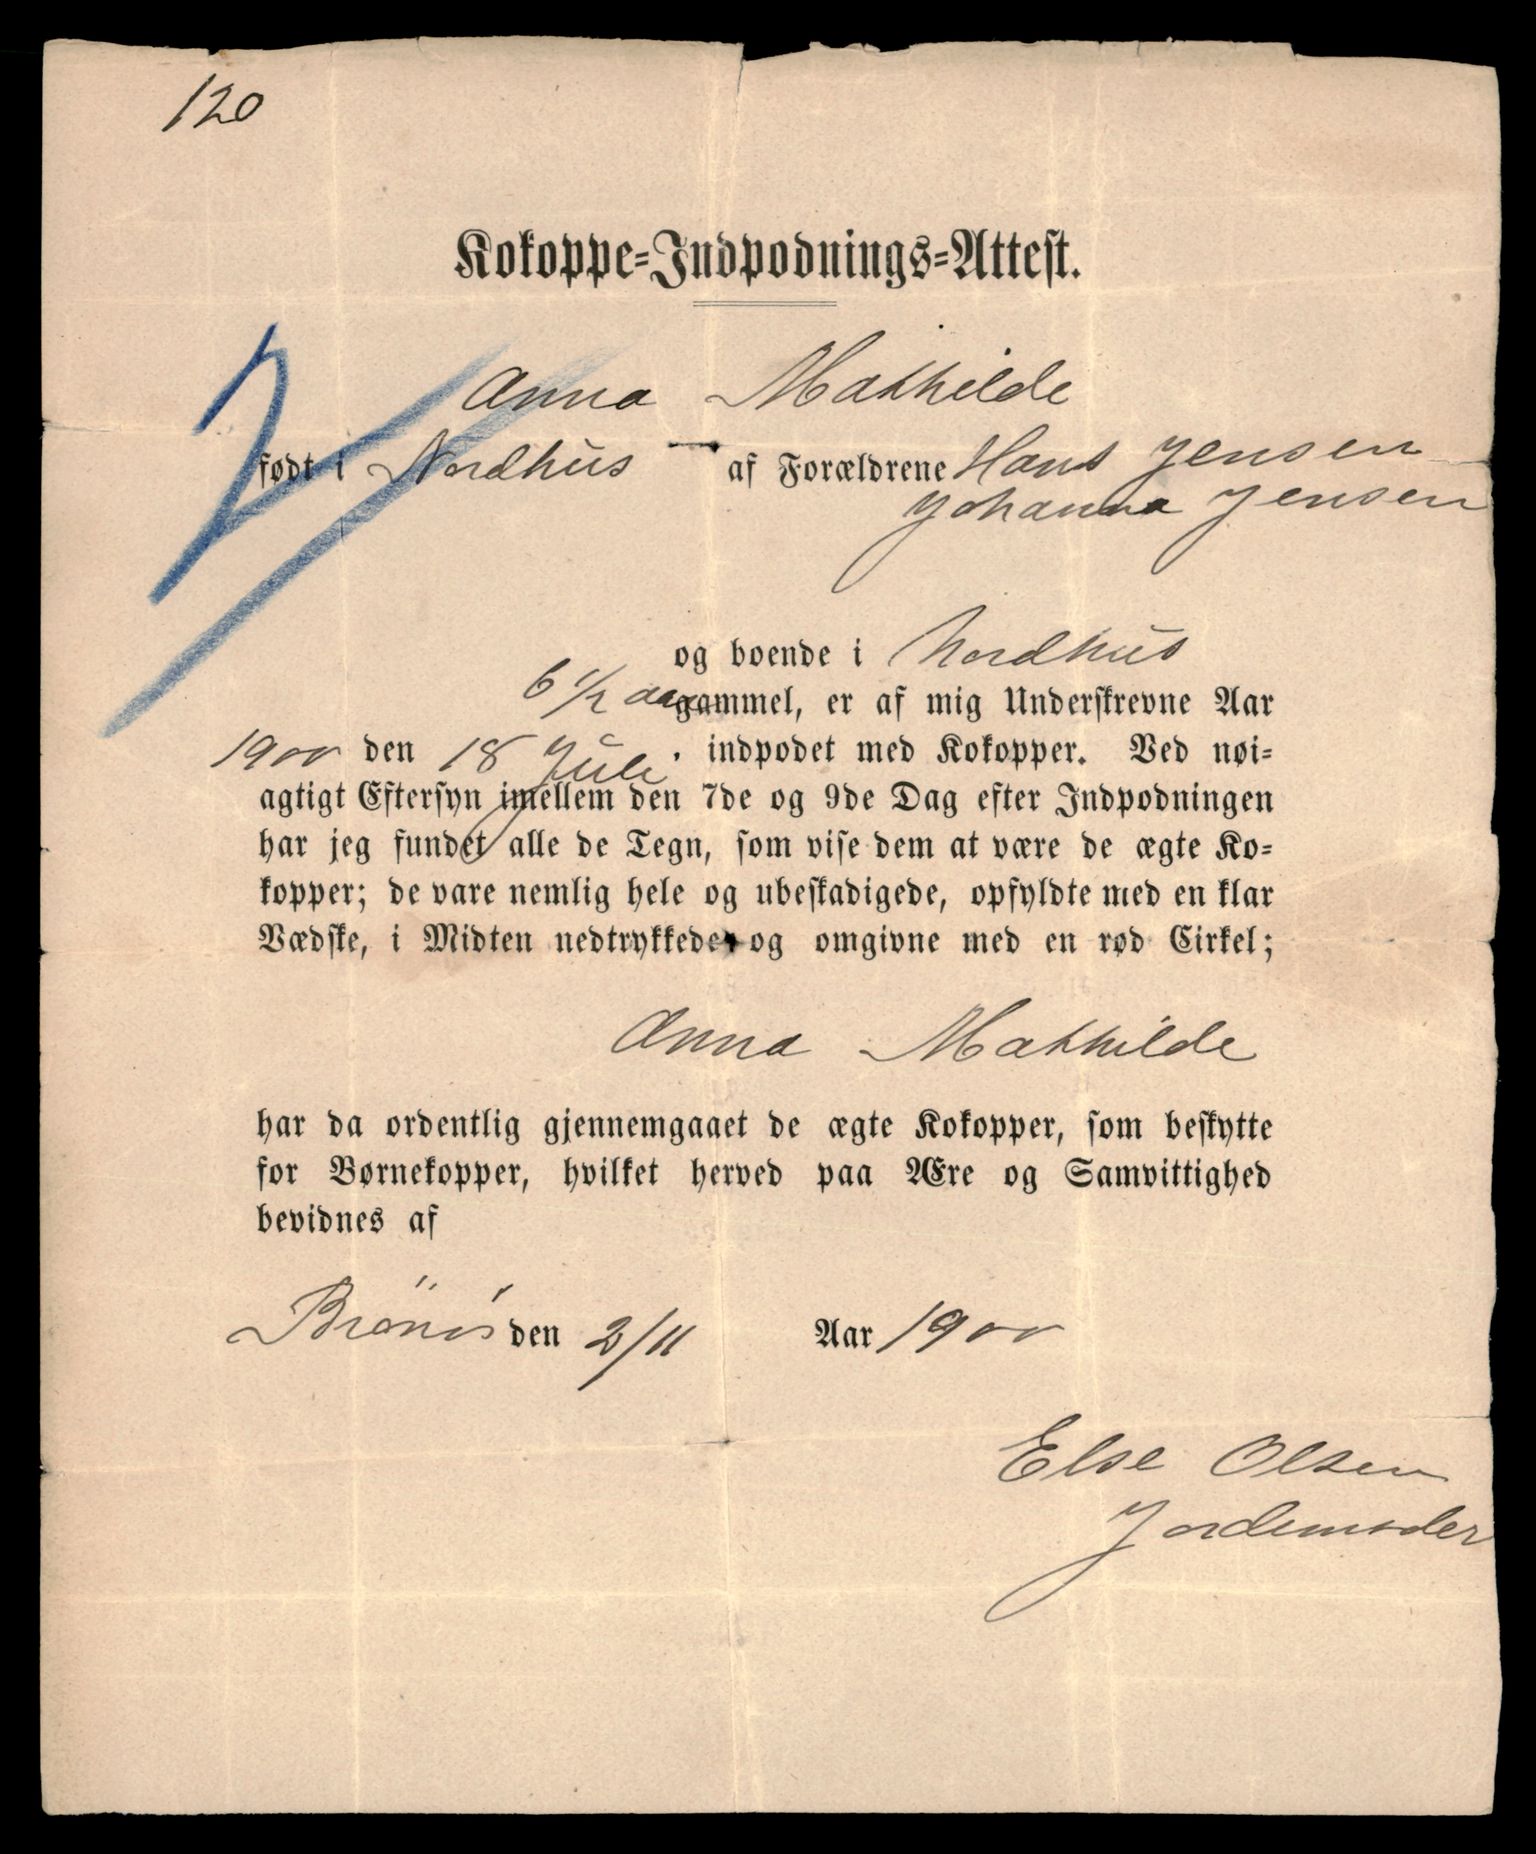 120
Kokoppe-Indpodnings-Attest.
Anna Mathilde
født i Nordhus af Forældrene Hans Jensen
Johanna Jensen
og boende i Nordhus
6 1/2 aar gammel, er af mig Underskrevne Aar
1900 den 18 Juli. indpodet med Kokopper. Ved nøi-
agtigt Eftersyn imellem den 7de og 9de Dag efter Indpodningen
har jeg fundet alle de Tegn, som vise dem at være de ægte Ko-
kopper; de vare nemlig hele og ubeskadigede, opfyldte med en klar
Vædske, i Midten nedtrykkede, og omgivne med en rød Cirkel;
Anna Mathilde
har da ordentlig gjennemgaaet de ægte Kokopper, som beskytte
for Børnekopper, hvilket herved paa Ære og Samvittighed
bevidnes af
den 2/11 Aar 1900
Else Olsen
Jordemoder